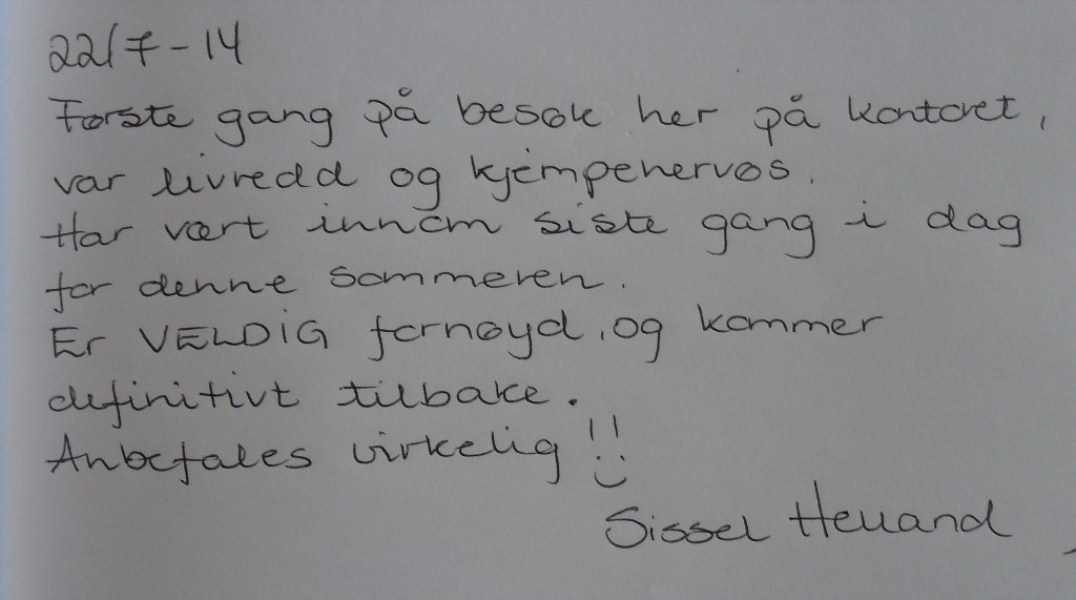 22/7-14
Første gang på besøk her på kontoret,
var livredd og kjempenervøs.
Har vært innom siste gang i dag
for denne sommeren.
Er VELDIG fornøyd, og kommer
definitivt tilbake.
Anbefales virkelig !!
Sissel